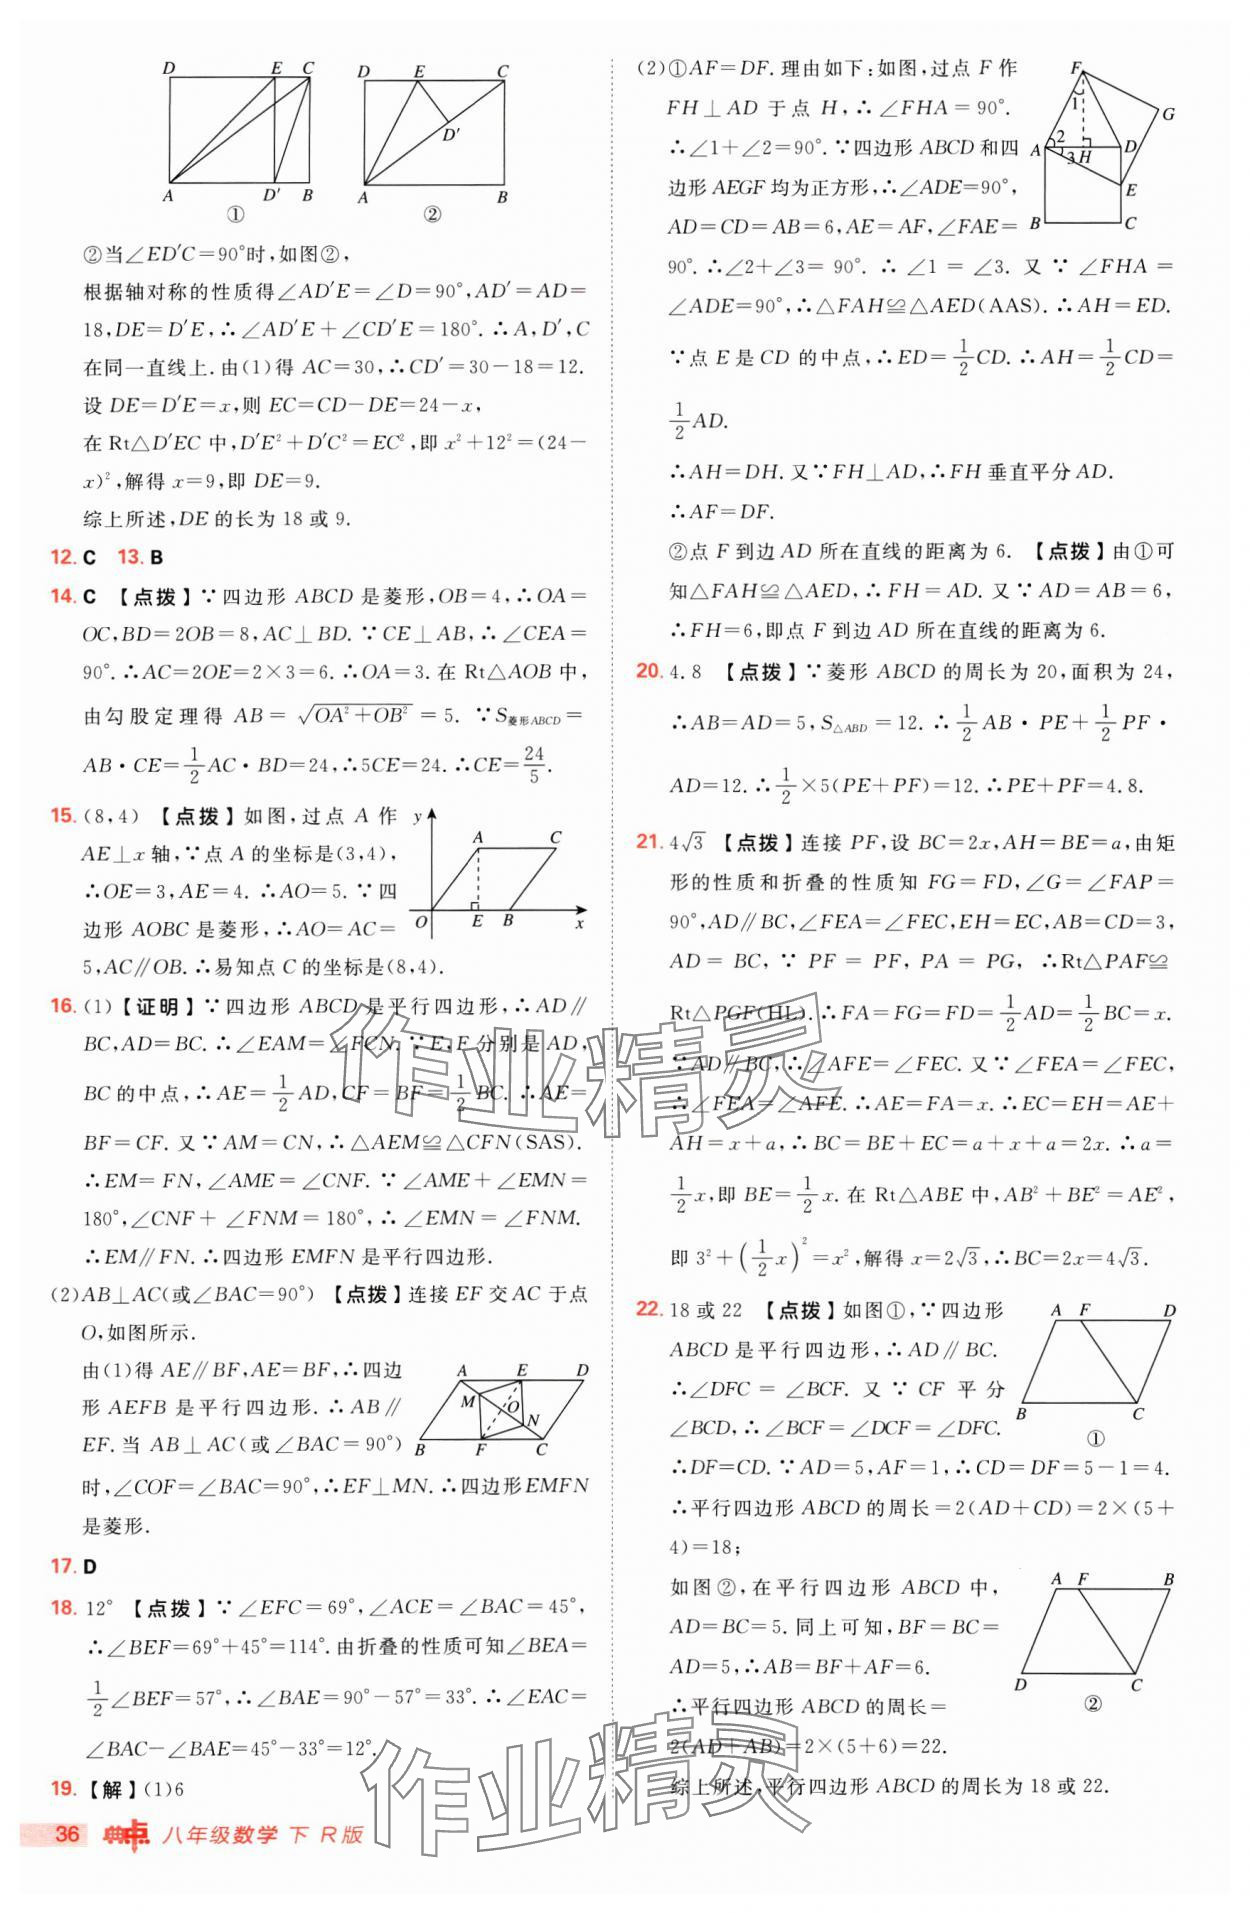 D E C
A D′ B
①
D E C
D′
A B
②
②当∠ED′C=90°时,如图②,
根据轴对称的性质得∠AD′E=∠D=90°,AD′=AD=
18,DE=D′E,∴∠AD′E+∠CD′E=180°.∴A,D′,C
在同一直线上.由(1)得 AC=30,∴CD′=30-18=12.
设 DE=D′E=x,则 EC=CD-DE=24-x,
在 Rt△D′EC 中,D′E²+D′C²=EC²,即 x²+12²=(24-
x)²,解得 x=9,即 DE=9.
综上所述,DE 的长为 18 或 9.
12. C 13. B
14. C 【点拨】∵四边形 ABCD 是菱形,OB=4,∴OA=
OC,BD=2OB=8,AC⊥BD.∵CE⊥AB,∴∠CEA=
90°.∴AC=2OE=2×3=6.∴OA=3.在 Rt△AOB 中,
由勾股定理得 AB=√(OA²+OB²)=5.∵S菱形ABCD=
AB·CE=1/2AC·BD=24,∴5CE=24.∴CE=24/5.
15. (8,4) 【点拨】如图,过点 A 作
AE⊥x 轴,∵点 A 的坐标是(3,4),
∴OE=3,AE=4.∴AO=5.∵四
边形 AOBC 是菱形,∴AO=AC=
5,AC∥OB.∴易知点 C 的坐标是(8,4).
y
A C
O E B x
16. (1)【证明】∵四边形 ABCD 是平行四边形,∴AD∥
BC,AD=BC.∴∠EAM=∠FCN.∵E,F 分别是 AD,
BC 的中点,∴AE=1/2AD,CF=BF=1/2BC.∴AE=
BF=CF.又∵AM=CN,∴△AEM≌△CFN(SAS).
∴EM=FN,∠AME=∠CNF.∵∠AME+∠EMN=
180°,∠CNF+∠FNM=180°,∴∠EMN=∠FNM.
∴EM∥FN.∴四边形 EMFN 是平行四边形.
(2)AB⊥AC(或∠BAC=90°) 【点拨】连接 EF 交 AC 于点
O,如图所示.
由(1)得 AE∥BF,AE=BF,∴四边
形 AEFB 是平行四边形.∴AB∥
EF.当 AB⊥AC(或∠BAC=90°)
时,∠COF=∠BAC=90°,∴EF⊥MN.∴四边形EMFN
是菱形.
A E D
M O N
B F C
17. D
18. 12° 【点拨】∵∠EFC=69°,∠ACE=∠BAC=45°,
∴∠BEF=69°+45°=114°.由折叠的性质可知∠BEA=
1/2∠BEF=57°,∴∠BAE=90°-57°=33°.∴∠EAC=
∠BAC-∠BAE=45°-33°=12°.
19.【解】(1)6
(2)①AF=DF.理由如下:如图,过点 F 作
FH⊥AD 于点 H,∴∠FHA=90°.
∴∠1+∠2=90°.∵四边形 ABCD 和四
边形 AEGF 均为正方形,∴∠ADE=90°,
AD=CD=AB=6,AE=AF,∠FAE=
90°.∴∠2+∠3=90°.∴∠1=∠3.又∵∠FHA=
∠ADE=90°,∴△FAH≌△AED(AAS).∴AH=ED.
∵点 E 是 CD 的中点,∴ED=1/2CD.∴AH=1/2CD=
1/2AD.
∴AH=DH.又∵FH⊥AD,∴FH 垂直平分 AD.
∴AF=DF.
F
1 G
2
A 3 H D
E
B C
②点 F 到边 AD 所在直线的距离为 6. 【点拨】由①可
知△FAH≌△AED,∴FH=AD.又∵AD=AB=6,
∴FH=6,即点 F 到边 AD 所在直线的距离为 6.
20. 4.8 【点拨】∵菱形 ABCD 的周长为 20,面积为 24,
∴AB=AD=5,S△ABD=12.∴1/2AB·PE+1/2PF·
AD=12.∴1/2×5(PE+PF)=12.∴PE+PF=4.8.
21. 4√3 【点拨】连接 PF,设 BC=2x,AH=BE=a,由矩
形的性质和折叠的性质知 FG=FD,∠G=∠FAP=
90°,AD∥BC,∠FEA=∠FEC,EH=EC,AB=CD=3,
AD=BC,∵PF=PF,PA=PG,∴Rt△PAF≌
Rt△PGF(HL).∴FA=FG=FD=1/2AD=1/2BC=x.
∵AD∥BC,∴∠AFE=∠FEC.又∵∠FEA=∠FEC,
∴∠FEA=∠AFE.∴AE=FA=x.∴EC=EH=AE+
AH=x+a,∴BC=BE+EC=a+x+a=2x.∴a=
1/2x,即 BE=1/2x.在 Rt△ABE 中,AB²+BE²=AE²,
即 3²+(1/2x)²=x²,解得 x=2√3,∴BC=2x=4√3.
22. 18 或 22 【点拨】如图①,∵四边形
ABCD 是平行四边形,∴AD∥BC.
∴∠DFC=∠BCF.又∵CF 平分
∠BCD,∴∠BCF=∠DCF=∠DFC.
∴DF=CD.∵AD=5,AF=1,∴CD=DF=5-1=4.
∴平行四边形 ABCD 的周长=2(AD+CD)=2×(5+
4)=18;
A F D
B C
①
如图②,在平行四边形 ABCD 中,
AD=BC=5.同上可知,BF=BC=
AD=5,∴AB=BF+AF=6.
∴平行四边形 ABCD 的周长=
2(AD+AB)=2×(5+6)=22.
综上所述,平行四边形 ABCD 的周长为 18 或 22.
A F B
D C
②
作业精灵
作业精灵
36 典点 八年级数学 下 R版